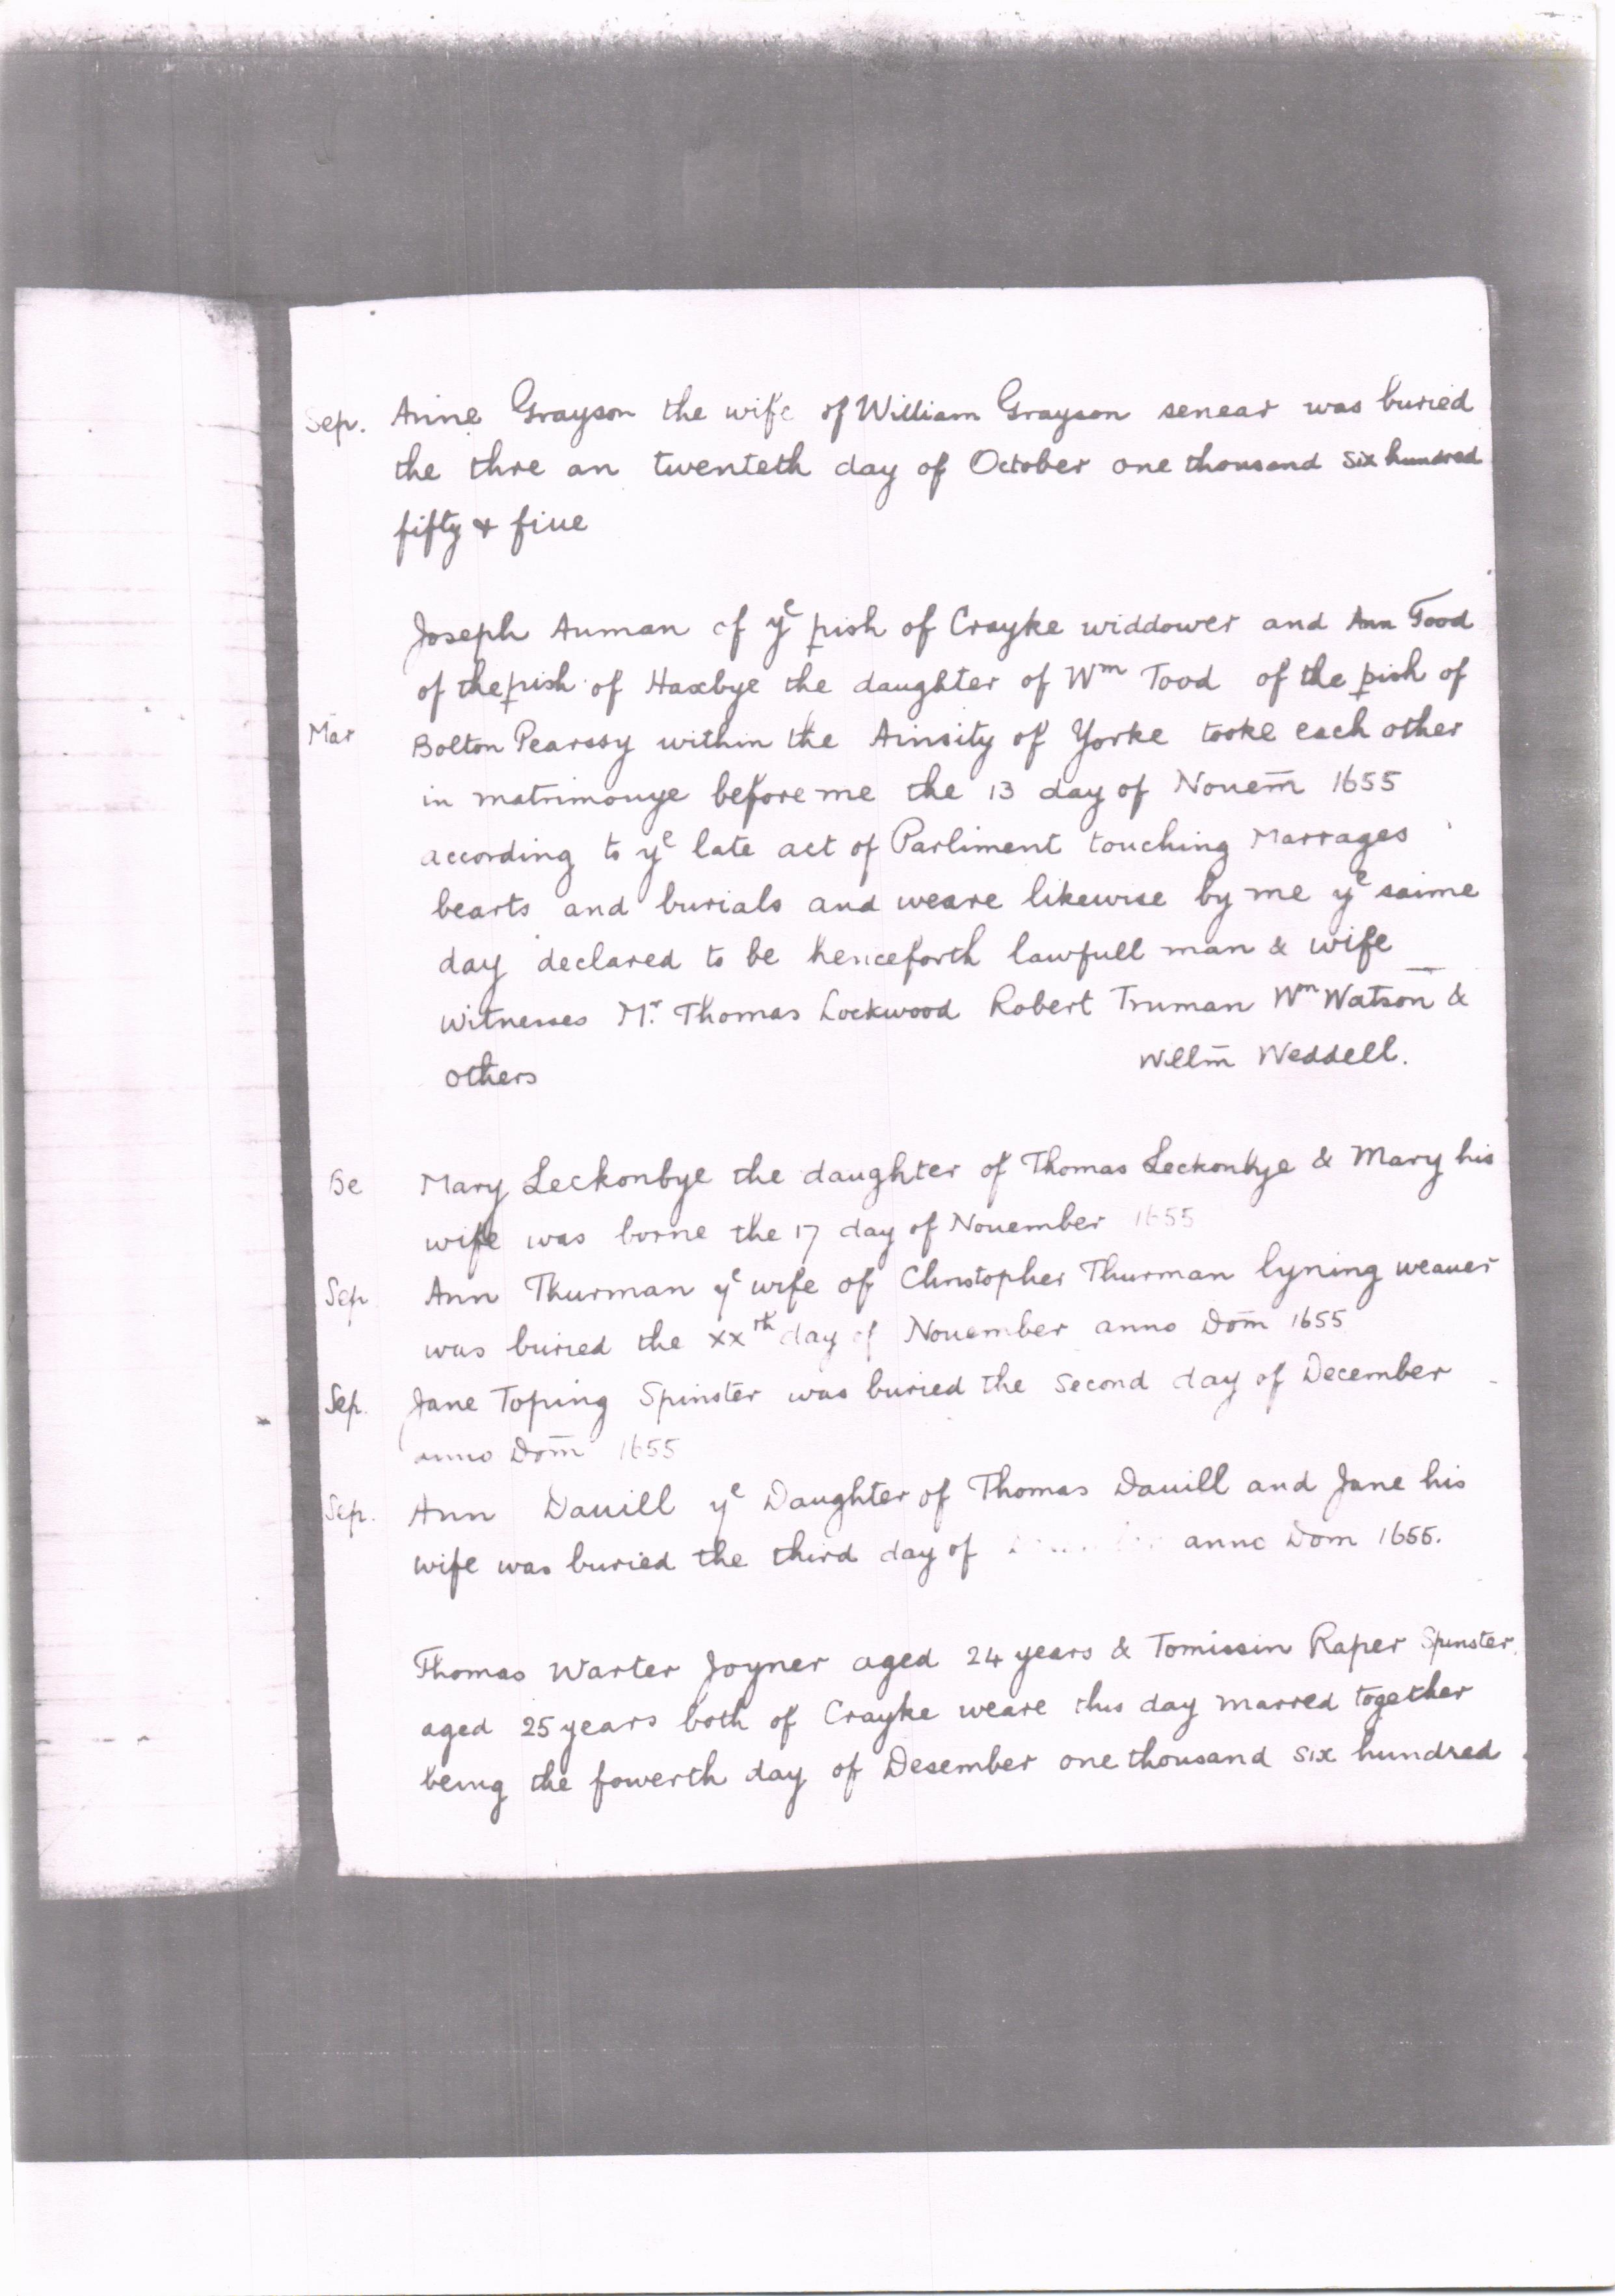 Sep. Anne Grayson the wife of William Grayson senear was buried
the thre an twenteth day of October one thousand six hundred
fifty & fiue
Joseph Auman of yᵉ pish of Crayke widdower and Ann Tood
of the pish of Haxbye the daughter of Wᵐ Tood of the pish of
Mar Bolton Pearssy within the Ainsity of Yorke tooke each other
in matrimonye before me the 13 day of Nouem̄ 1655
according to yᵉ late act of Parliment touching Marrages
bearts and burials and weare likewise by me yᵉ saime
day declared to be henceforth lawfull man & wife
witnesses Mʳ. Thomas Lockwood Robert Truman Wᵐ Watson &
others Wellm̄ Weddell.
Be Mary Leckonbye the daughter of Thomas Leckonbye & Mary his
wife was borne the 17 day of Nouember 1655
Sep Ann Thurman yᵉ wife of Christopher Thurman lyning weauer
was buried the xxᵗʰ day of Nouember anno Dom̄ 1655
Sep. Jane Toping Spinster was buried the second day of December
anno Dom̄ 1655
Sep. Ann Dauill yᵉ Daughter of Thomas Dauill and Jane his
wife was buried the third day of anno Dom 1655.
Thomas Warter Joyner aged 24 years & Tomissin Raper Spinster
aged 25 years both of Crayke weare this day marred together
being the fowerth day of Desember one thousand six hundred